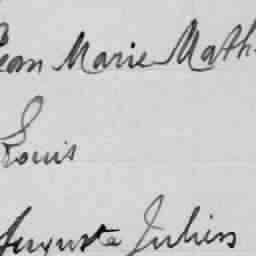 Jean Marie Math
Louis
Auguste Julien